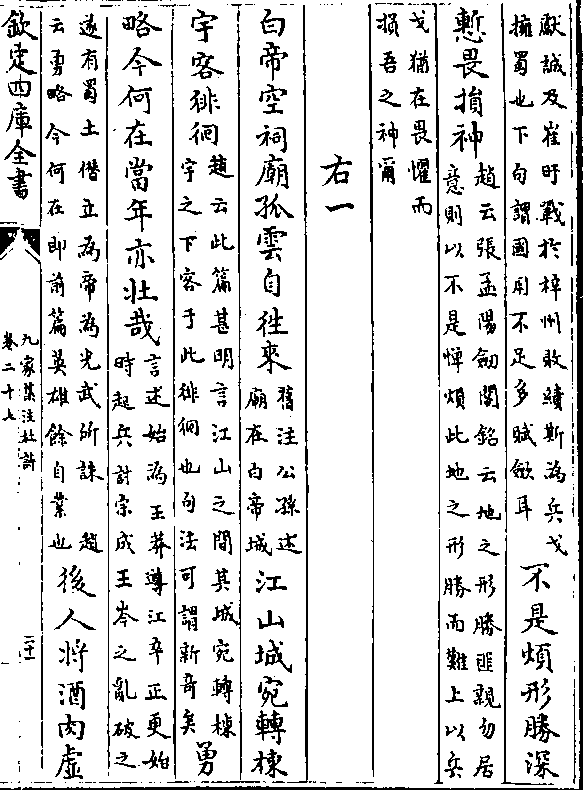 獻誠及崔旰戰於梓州敗績斯為兵戈
擁蜀也下句謂國用不足多賦斂耳
不是煩形勝深
慙畏損神
趙云張孟陽劒閣銘云地之形勝匪親勿居
意則以不是憚煩此地之形勝而難上以兵
戈猶在畏懼而
損吾之神爾
右一
白帝空祠廟孤雲自往來
舊注公孫述
廟在白帝城
江山城宛轉棟
宇客徘徊
趙云此篇甚明言江山之間其城宛轉棟
宇之下客于此徘徊也句法可謂新奇矣
勇
略今何在當年亦壯哉
言述始為王莽導江卒正更始
時起兵討宗成王岑之亂破之
遂有蜀土僭立為帝為光武所誅 趙
云勇略今何在即前篇英雄餘自業也
後人將酒肉虛
欽定四庫全書
九家集注杜詩
卷二十七
二十一